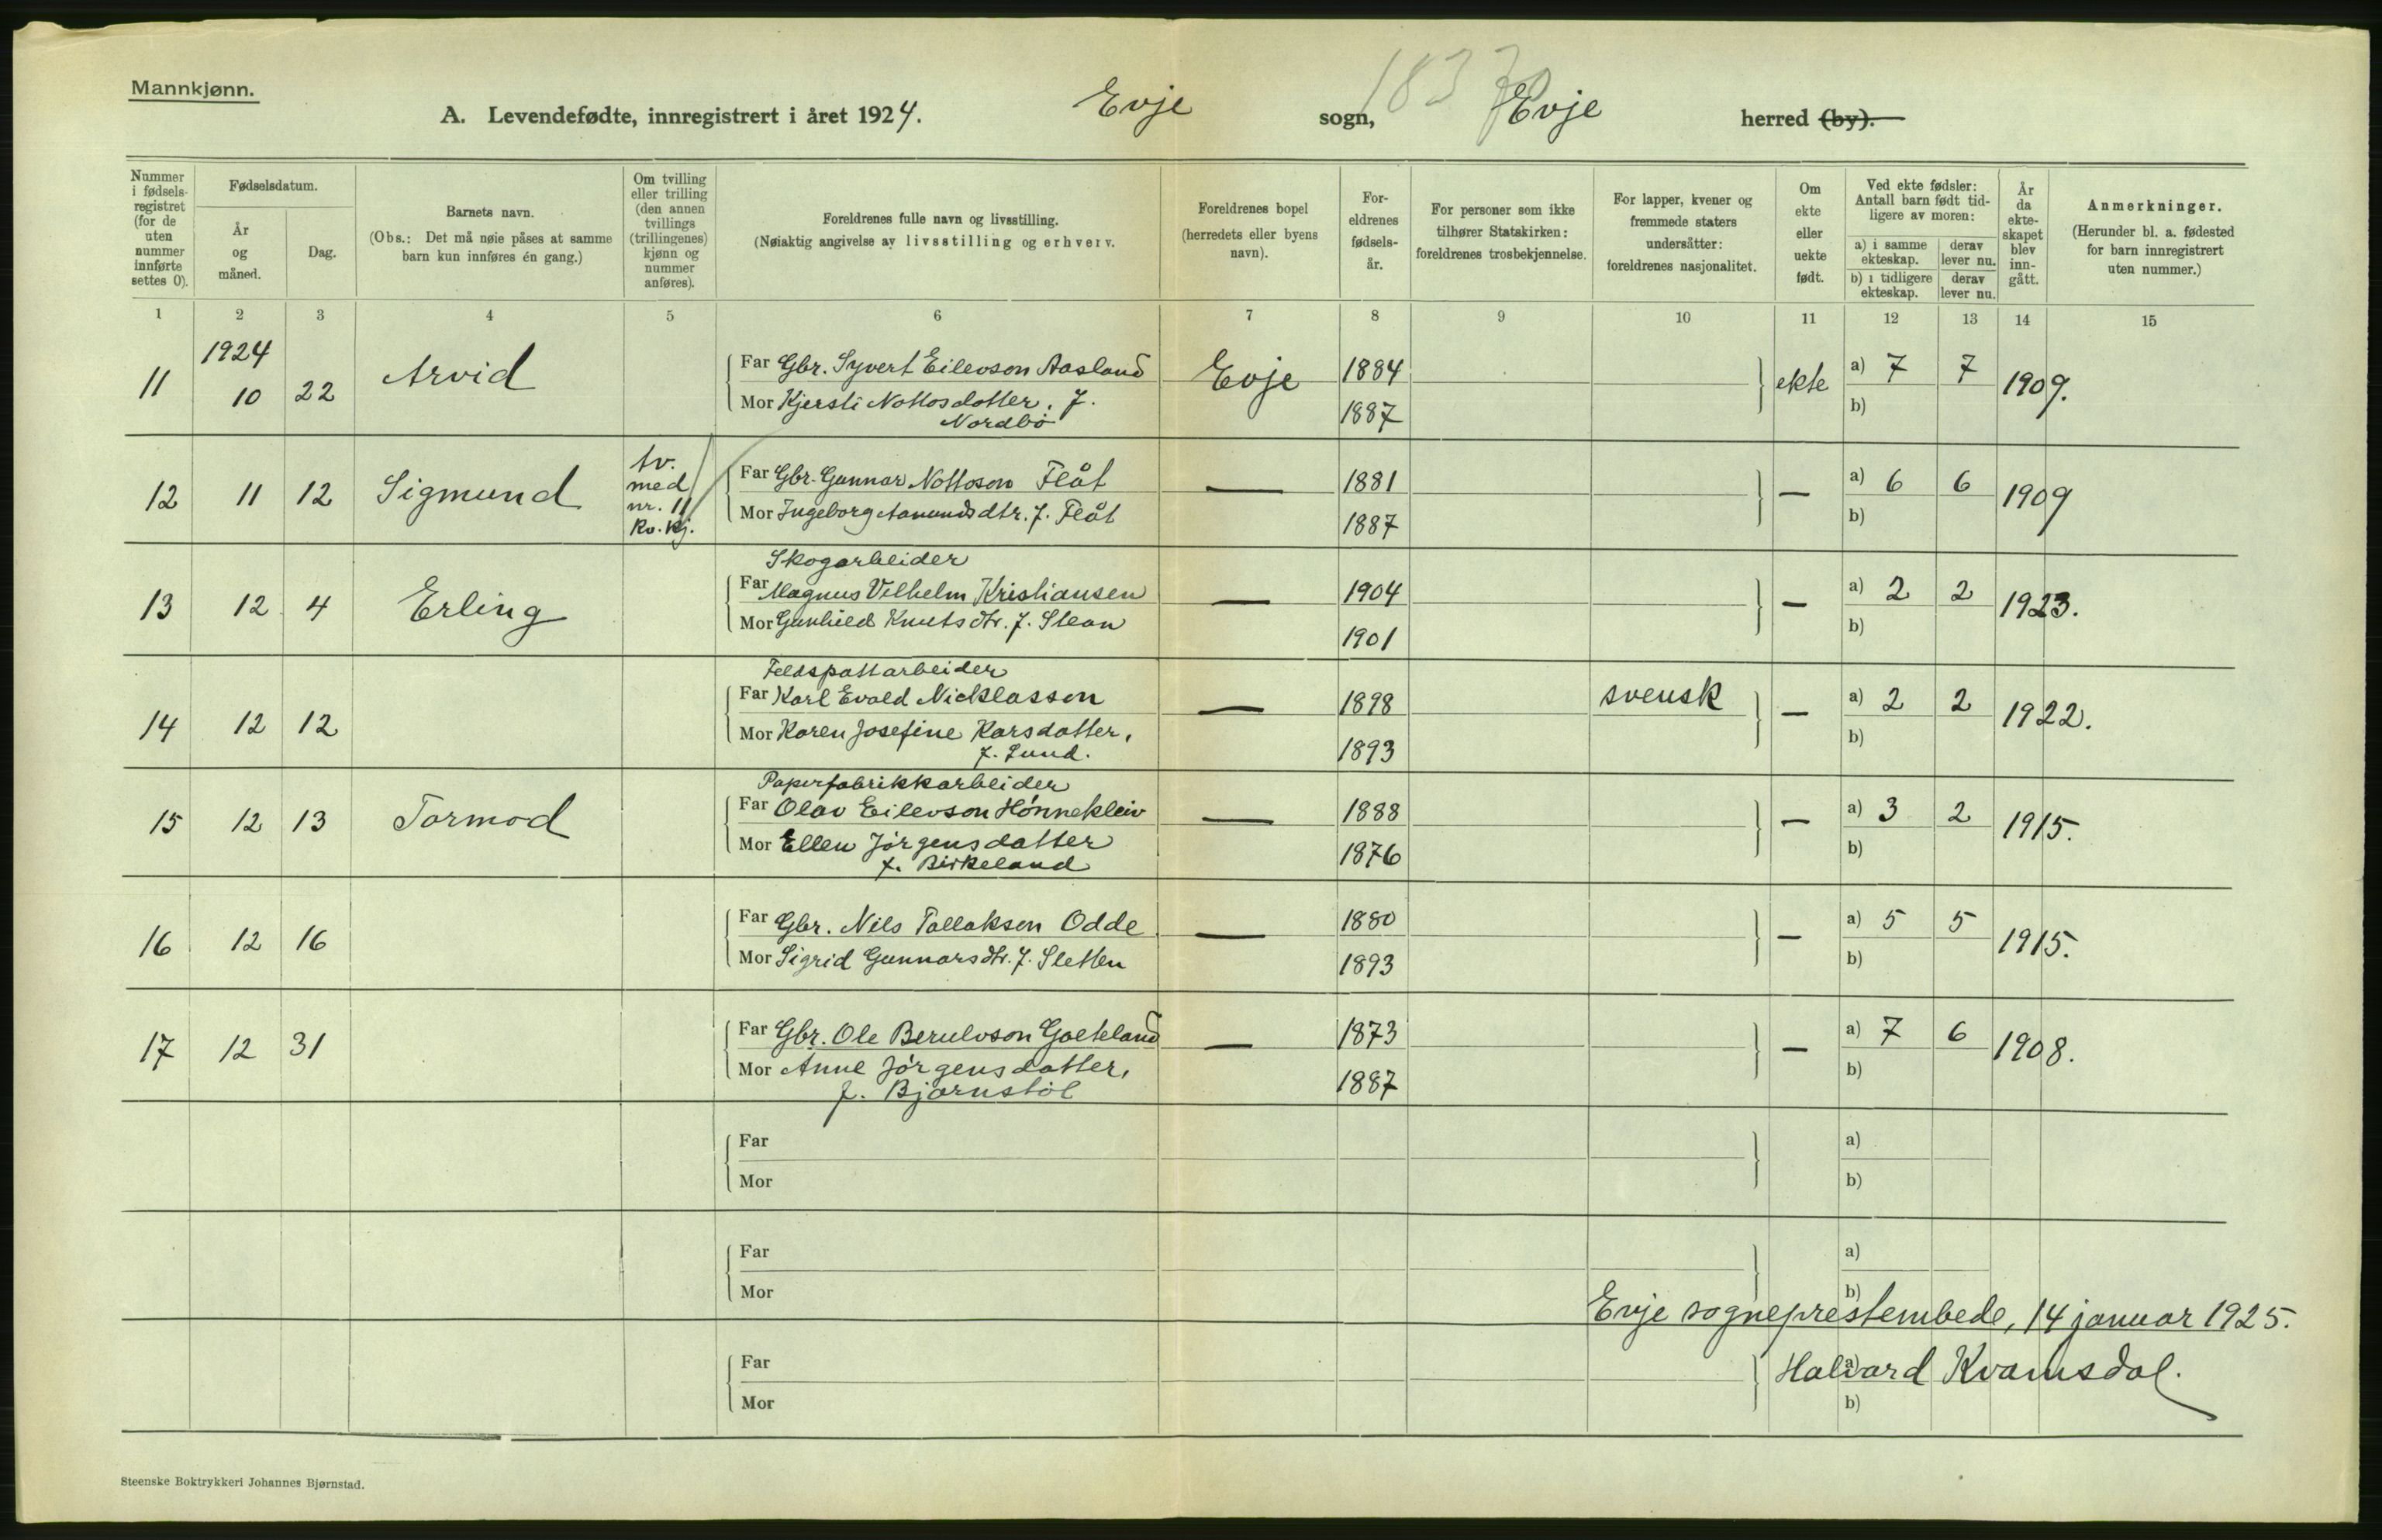 Mannkjønn.
1837
A. Levendefødte, innregistrert i året 1924. Evje sogn, Evje herred (by).
Nummer i fødsels-registret (for de uten nummer innførte settes 0).
Fødselsdatum.
År og måned.
Dag.
Barnets navn.
(Obs.: Det må nøie påses at samme barn kun innføres én gang.)
Om tvilling eller trilling (den annen tvillings (trillingenes) kjønn og nummer anføres).
Foreldrenes fulle navn og livsstilling.
(Nøiaktig angivelse av livsstilling og erhverv.
Foreldrenes bopel (herredets eller byens navn).
For-eldrenes fødsels-år.
For personer som ikke tilhører Statskirken: foreldrenes trosbekjennelse.
For lapper, kvener og fremmede staters undersåtter: foreldrenes nasjonalitet.
Om ekte eller uekte født.
Ved ekte fødsler: Antall barn født tid-ligere av moren:
a) i samme ekteskap.
derav lever nu.
b) i tidligere ekteskap.
derav lever nu.
År da ekte-skapet blev inn-gått.
Anmerkninger.
(Herunder bl. a. fødested for barn innregistrert uten nummer.)
1 2 3 4 5 6 7 8 9 10 11 12 13 14 15
1924
11 10 22 Arvid Far Gbr. Syvert Eilevson Aasland Evje 1884 ekte a) 7 7 1909.
Mor Kjersti Nottosdotter, f. 1887 b)
Nordbø
12 11 12 Sigmund tv. med nr. 11 kv. kj. Far Gbr. Gunnar Nottoson Flåt — 1881 — a) 6 6 1909
Mor Ingeborg Aamundsdtr. f. Flåt 1887 b)
Skogarbeider
13 12 4 Erling Far Magnus Vilhelm Kristiansen — 1904 — a) 2 2 1923.
Mor Gunhild Knutsdtr. f. Stean 1901 b)
Feltspattarbeider
14 12 12 Far Karl Evald Nicklasson — 1898 svensk — a) 2 2 1922.
Mor Karen Josefine Karsdatter, 1893 b)
f. Lund.
Papirfabrikkarbeider
15 12 13 Tormod Far Olav Eilevson Hønnekleiv — 1888 — a) 3 2 1915.
Mor Ellen Jørgensdatter 1876 b)
f. Birkeland
16 12 16 Far Gbr. Nils Tallaksen Odde — 1880 — a) 5 5 1915.
Mor Sigrid Gunnarsdtr. f. Sletten 1893 b)
17 12 31 Far Gbr. Ole Berulvson Gaateland — 1873 — a) 7 6 1908.
Mor Anne Jørgensdatter, 1887 b)
f. Bjørnstøl
Far a)
Mor b)
Far a)
Mor b)
Evje sogneprestembede, 14 januar 1925.
Far a)
Halvard Kvamsdal.
Mor b)
Steenske Boktrykkeri Johannes Bjørnstad.